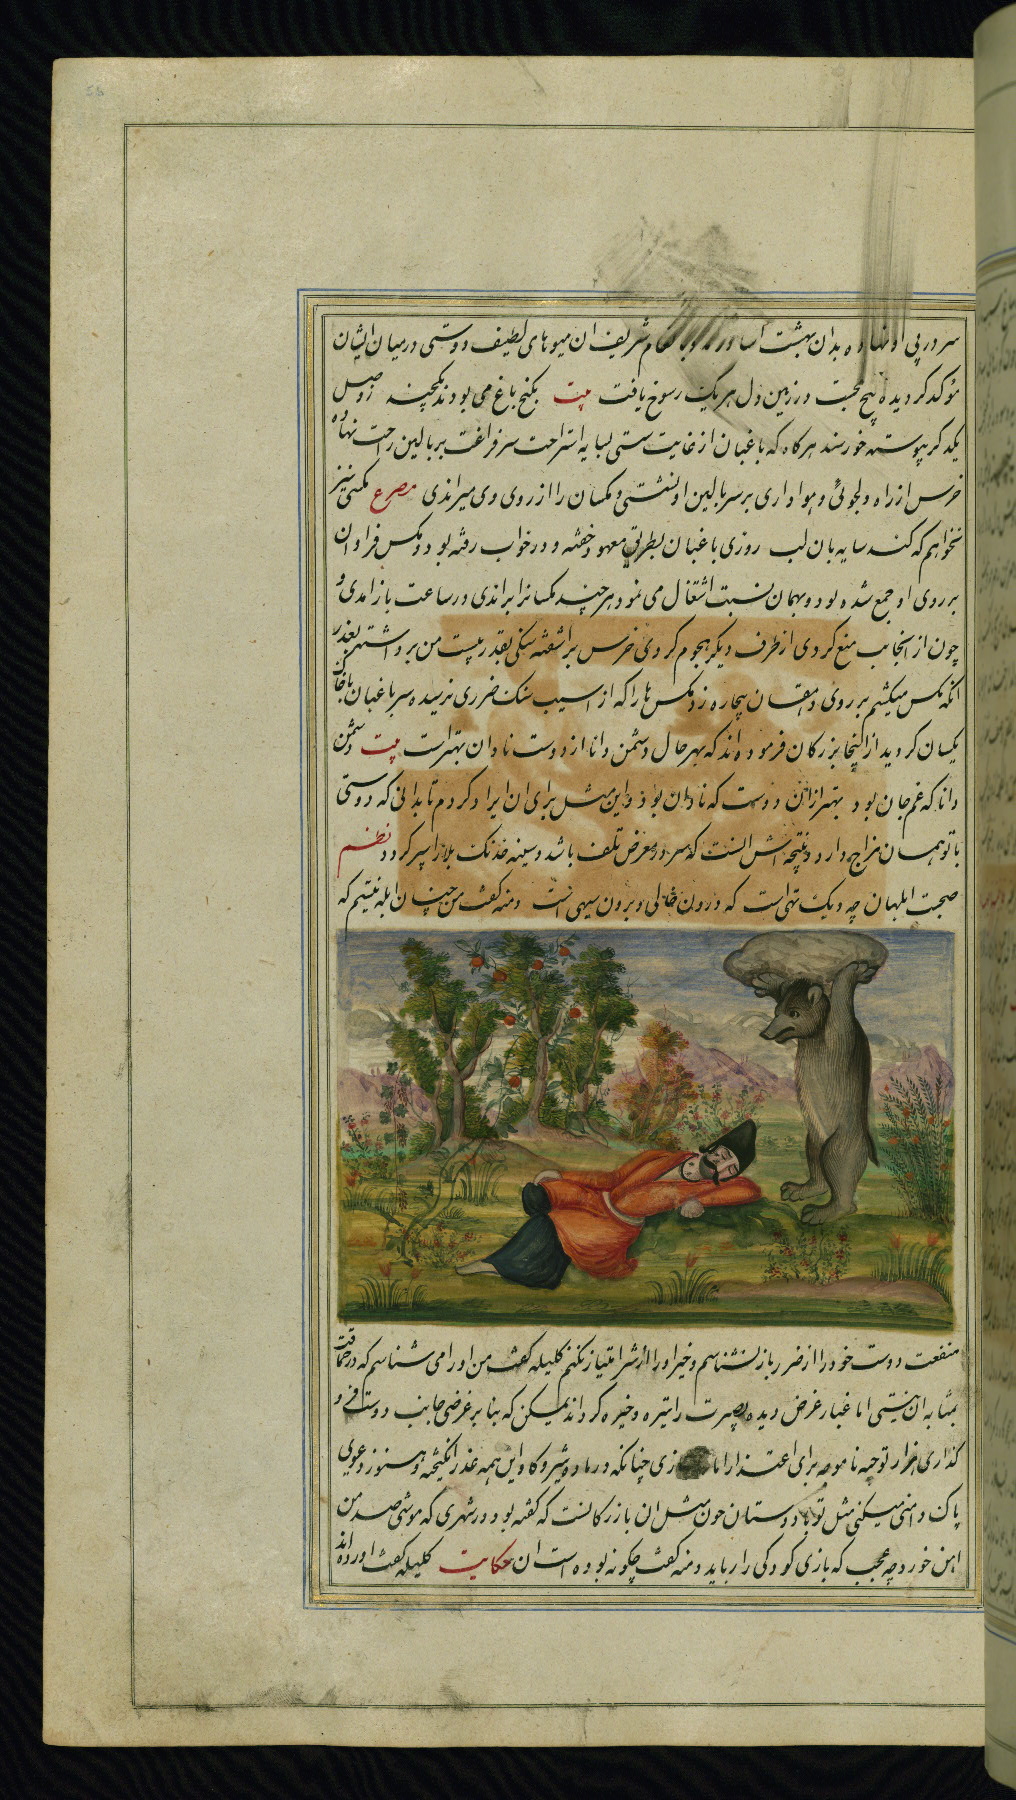 سر در پی او نهاده بدان بهشت آسا در آمد و با کرام شریف ان میوهای لطیف دوستی درمیان ایشان
مؤکد کردیده بیخ محبت در زمین دل هر یک رسوخ یافت بیت بکنج باغ می بودند یکچند ز وصل
یکدکر پیوسته خورسند هرکاه که باغبان از غایت سستی بسایه استراحت سر فراغت بر بالین راحت نهاده
خرس از راه دلجوئی و هواداری بر سر بالین او نشستی و مکسان را از روی وی میراندی مصرع مکسی نیز
نخواهم که کند سایه بان لب روزی باغبان بطریق معهود خفته و در خواب رفته بود و مکس فراوان
بر روی او جمع شده بود و بهمان نسبت اشتغال می نمود هر چند مکسانرا براندی در ساعت باز آمدی و
چون از اینجانب منع کردی از طرف دیکر هجوم کردی خرس براشفته سنکی بقدر بیست من برداشته بقدر
آنکه مکس میکشیم بر روی دهقان بیچاره زد مکس ها را که از اسیب سنک ضرری نرسیده سر باغبان با خاک
یکسان کردید از اینجا بزرکان فرموده اند که بهر حال دشمن دانا از دوست نادان بهتر است بیت دشمن
دانا که غم جان بود بهتر از ان دوست که نادان بود و این مثل برای ان ایراد کردم تا بدانی که دوستی
با تو همان مزاج دارد و نتیجه اش انست که سر در معرض تلف باشد و سینه خدنک بلا را سپر کردد نظم
صحبت ابلهان چو دیک تهی است که درون خالی و برون سیهی است دمنه کفت من چنان ابله نیستیم که
منفعت دوست خود را از ضرر باز نشناسم و خیر او را از شر امتیاز نکنم کلیله کفت من او را می شناسم که در حماقت
بمثابه ان نیستی اما غبار غرض دیده بصیرت را تیره و خیره کرداند یمکن که بنا بر غرضی جانب دوست فرو
کذاری هزار توجیه ناموجه برای اعتذار ان سازی چنانکه در ماده شیر و کاو این همه عذر انکیخته و هنوز دعوی
پاک دامنی میکنی مثل تو با دوستان چون مثل ان بازرکانست که کفته بود در شهری که موشی صد من
اهن خورد چه عجب که بازی کودکی را رباید دمنه کفت چکونه بوده است ان حکایت کلیله کفت اورده اند